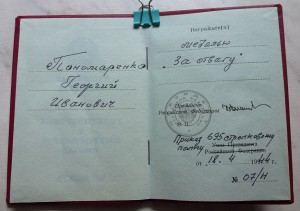 Пономаренко
Георгий
Иванович
Награжден(а)
медалью
"За отвагу"
Президент
Российской Федерации
М.П.
Приказ 695 стрелковому
полку
Указ Президента
Российской Федерации
от 18.4 1944 г.
№ 07/н